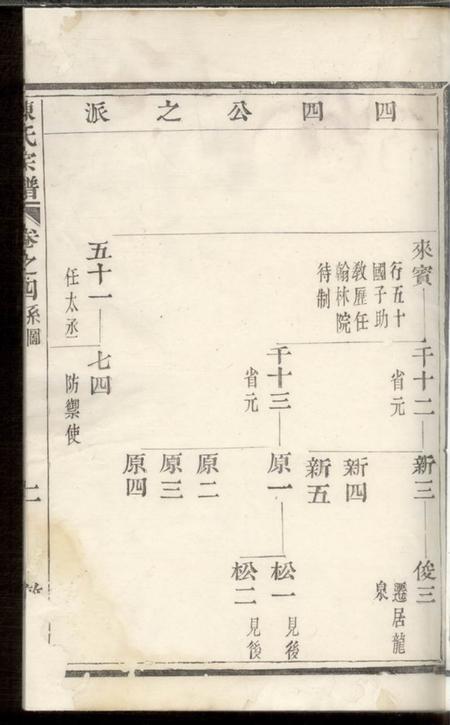 四四公之派
來賓
行五十
國子助
教歷任
翰林院
待制
千十二
省元
新三
俊三
遷居龍
泉
新四
新五
千十三
省元
原一
松一
見後
松二
見後
原二
原三
原四
五十一
任太丞
七四
防禦使
陳氏宗譜
卷之四系圖